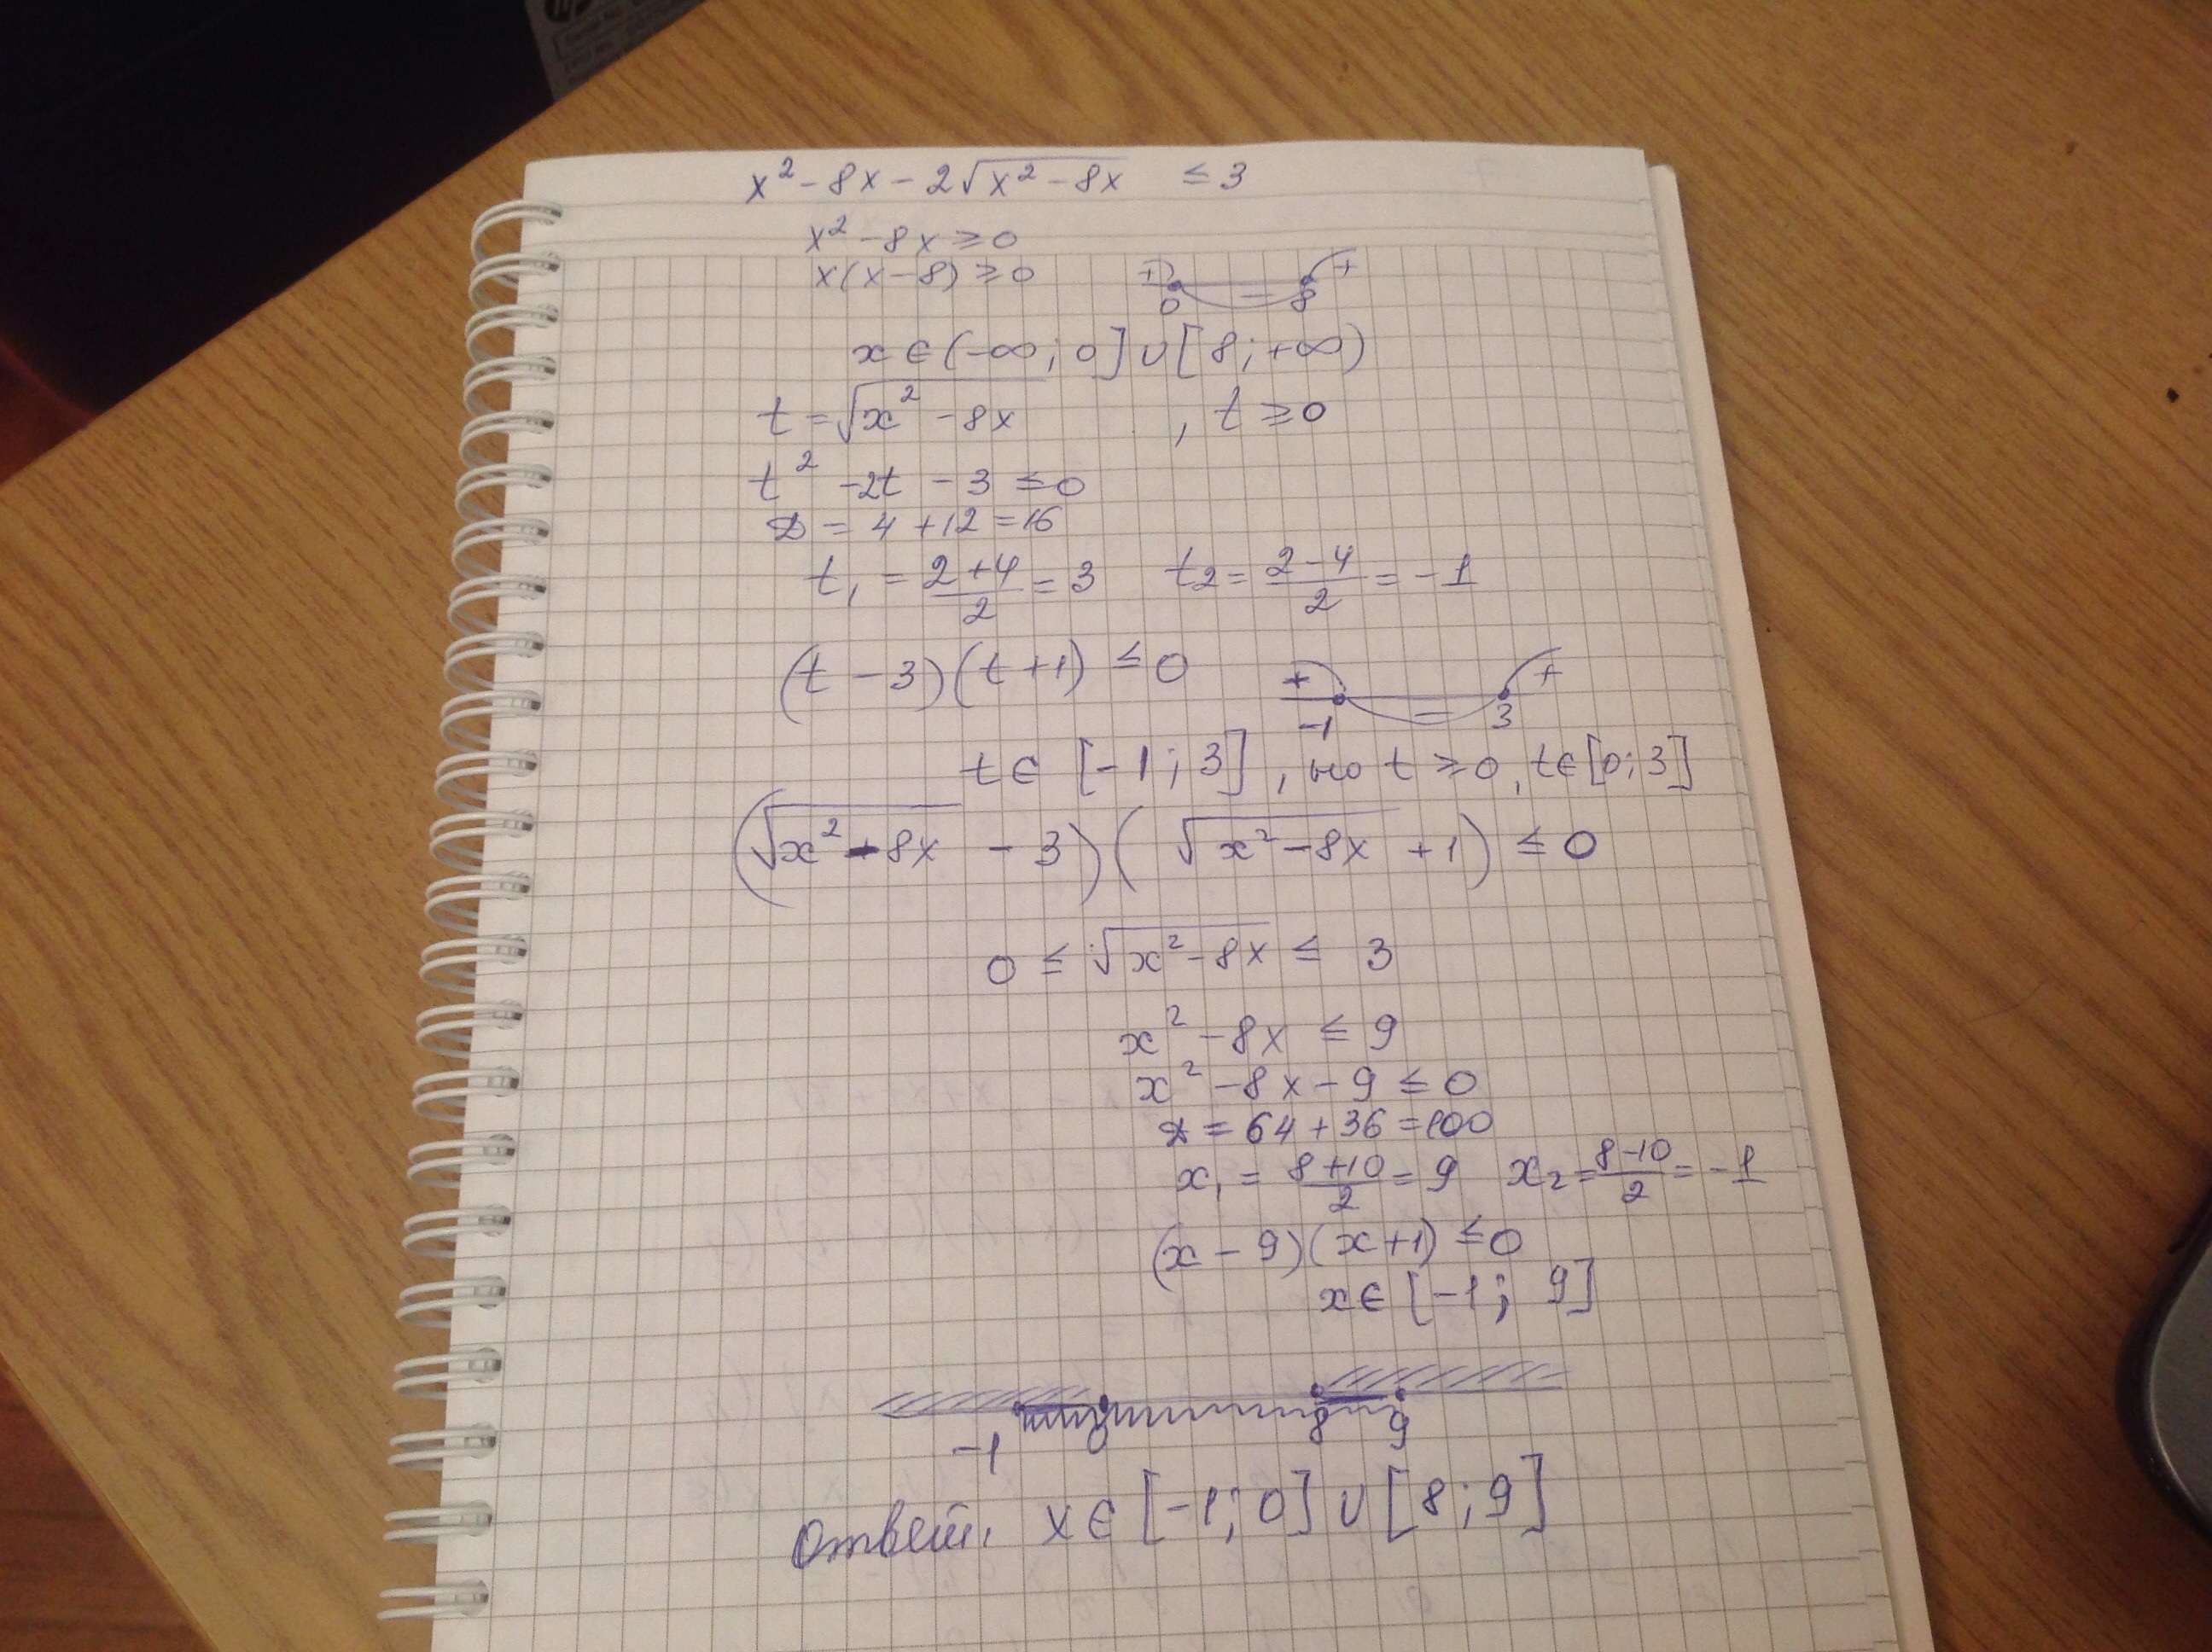 x² - 8x - 2√(x² - 8x) ≤ 3
x² - 8x ≥ 0
x(x - 8) ≥ 0 + 0 - 8 +
x ∈ (-∞; 0] ∪ [8; +∞)
t = √(x² - 8x) , t ≥ 0
t² - 2t - 3 ≤ 0
D = 4 + 12 = 16
t₁ = (2 + 4)/2 = 3 t₂ = (2 - 4)/2 = -1
(t - 3)(t + 1) ≤ 0 + -1 - 3 +
t ∈ [-1; 3], но t ≥ 0, t ∈ [0; 3]
(√(x² - 8x) - 3)(√(x² - 8x) + 1) ≤ 0
0 ≤ √(x² - 8x) ≤ 3
x² - 8x ≤ 9
x² - 8x - 9 ≤ 0
D = 64 + 36 = 100
x₁ = (8 + 10)/2 = 9 x₂ = (8 - 10)/2 = -1
(x - 9)(x + 1) ≤ 0
x ∈ [-1; 9]
-1 0 8 9
Ответ: x ∈ [-1; 0] ∪ [8; 9]